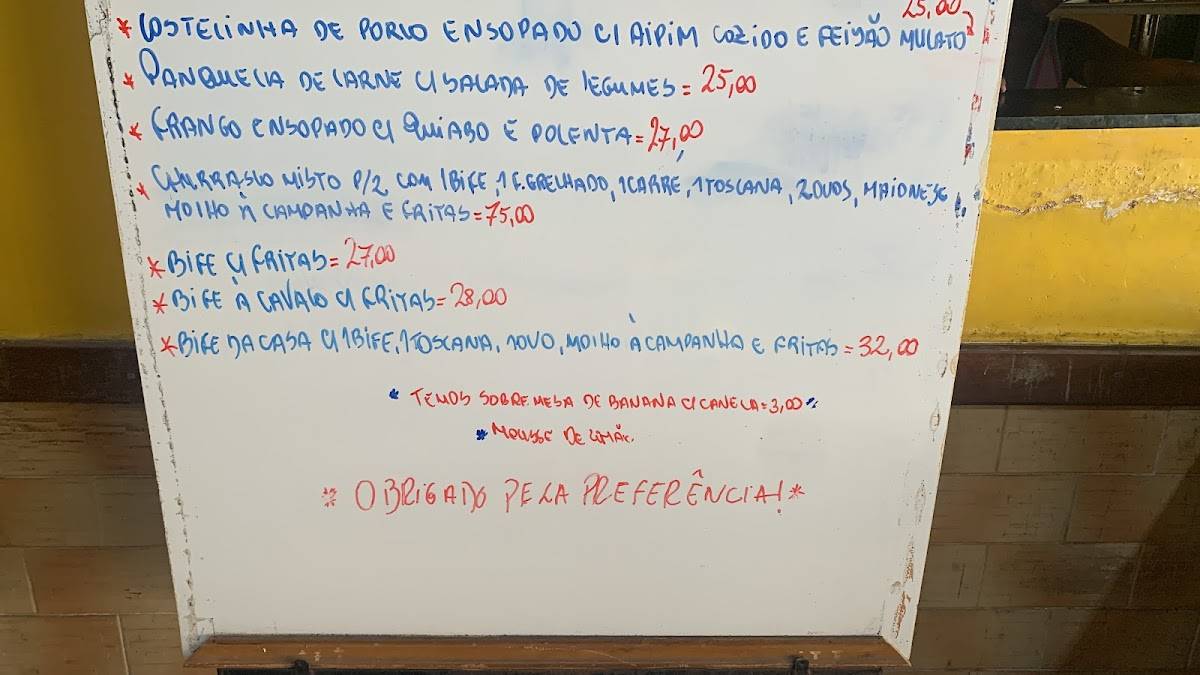 25,00
* COSTELINHA DE PORCO ENSOPADO C/ AIPIM COZIDO E FEIJÃO MULATO
* PANQUECA DE CARNE C/ SALADA DE LEGUMES = 25,00
* FRANGO ENSOPADO C/ QUIABO E POLENTA = 27,00
* CHURRASCO MISTO P/2, COM 1 BIFE, 1 F. GRELHADO, 1 CARRE, 1 TOSCANA, 2 OVOS, MAIONESE
MOLHO À CAMPANHA E FRITAS = 75,00
* BIFE C/ FRITAS = 27,00
* BIFE À CAVALO C/ FRITAS = 28,00
* BIFE DA CASA C/ 1 BIFE, 1 TOSCANA, 1 OVO, MOLHO À CAMPANHA E FRITAS = 32,00
* TEMOS SOBREMESA DE BANANA C/ CANELA = 3,00 *
* MOUSSE DE LIMÃO.
* OBRIGADO PELA PREFERÊNCIA! *